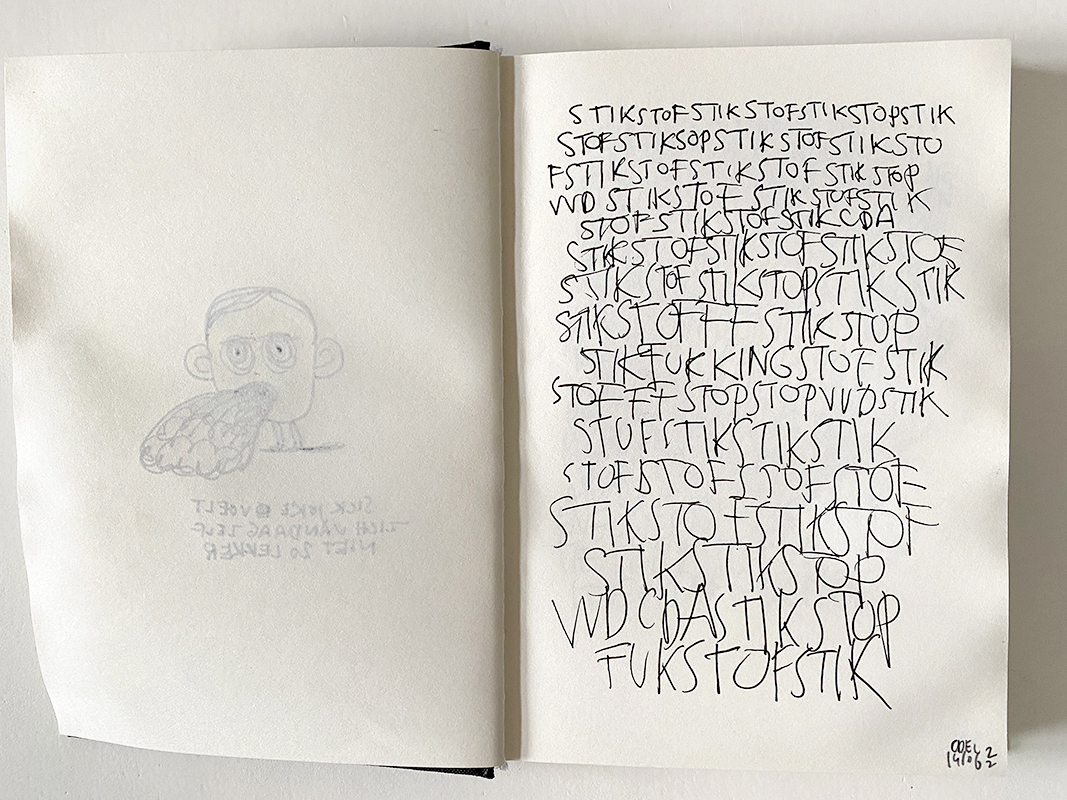 SICK JOKE VOELT
ZICH VANDAAG ZELF
NIET ZO LEKKER
STIKSTOFSTIKSTOFSTIKSTOPSTIK
STOFSTIKSOPSTIKSTOFSTIKSTO
FSTIKSTOFSTIKSTOFSTIKSTOP
VVD STIKSTOF STIKSTOFSTIK
STOFSTIKSTOFSTIKCDA
STIKSTOFSTIKSTOFSTIKSTOF
STIKSTOFSTIKSTOPSTIKSTIK
STIKSTOFFFSTIKSTOP
STIKFUKKINGSTOFSTIK
STOFFFSTOPSTOPVVDSTIK
STOFSTIKSTIKSTIK
STOFSTOFSSTOFSTOF
STIKSTOFSTIKSTOF
STIKSTIKSTOP
VVD CDASTIKSTOP
FUKSTOFSTIK
14/06 22